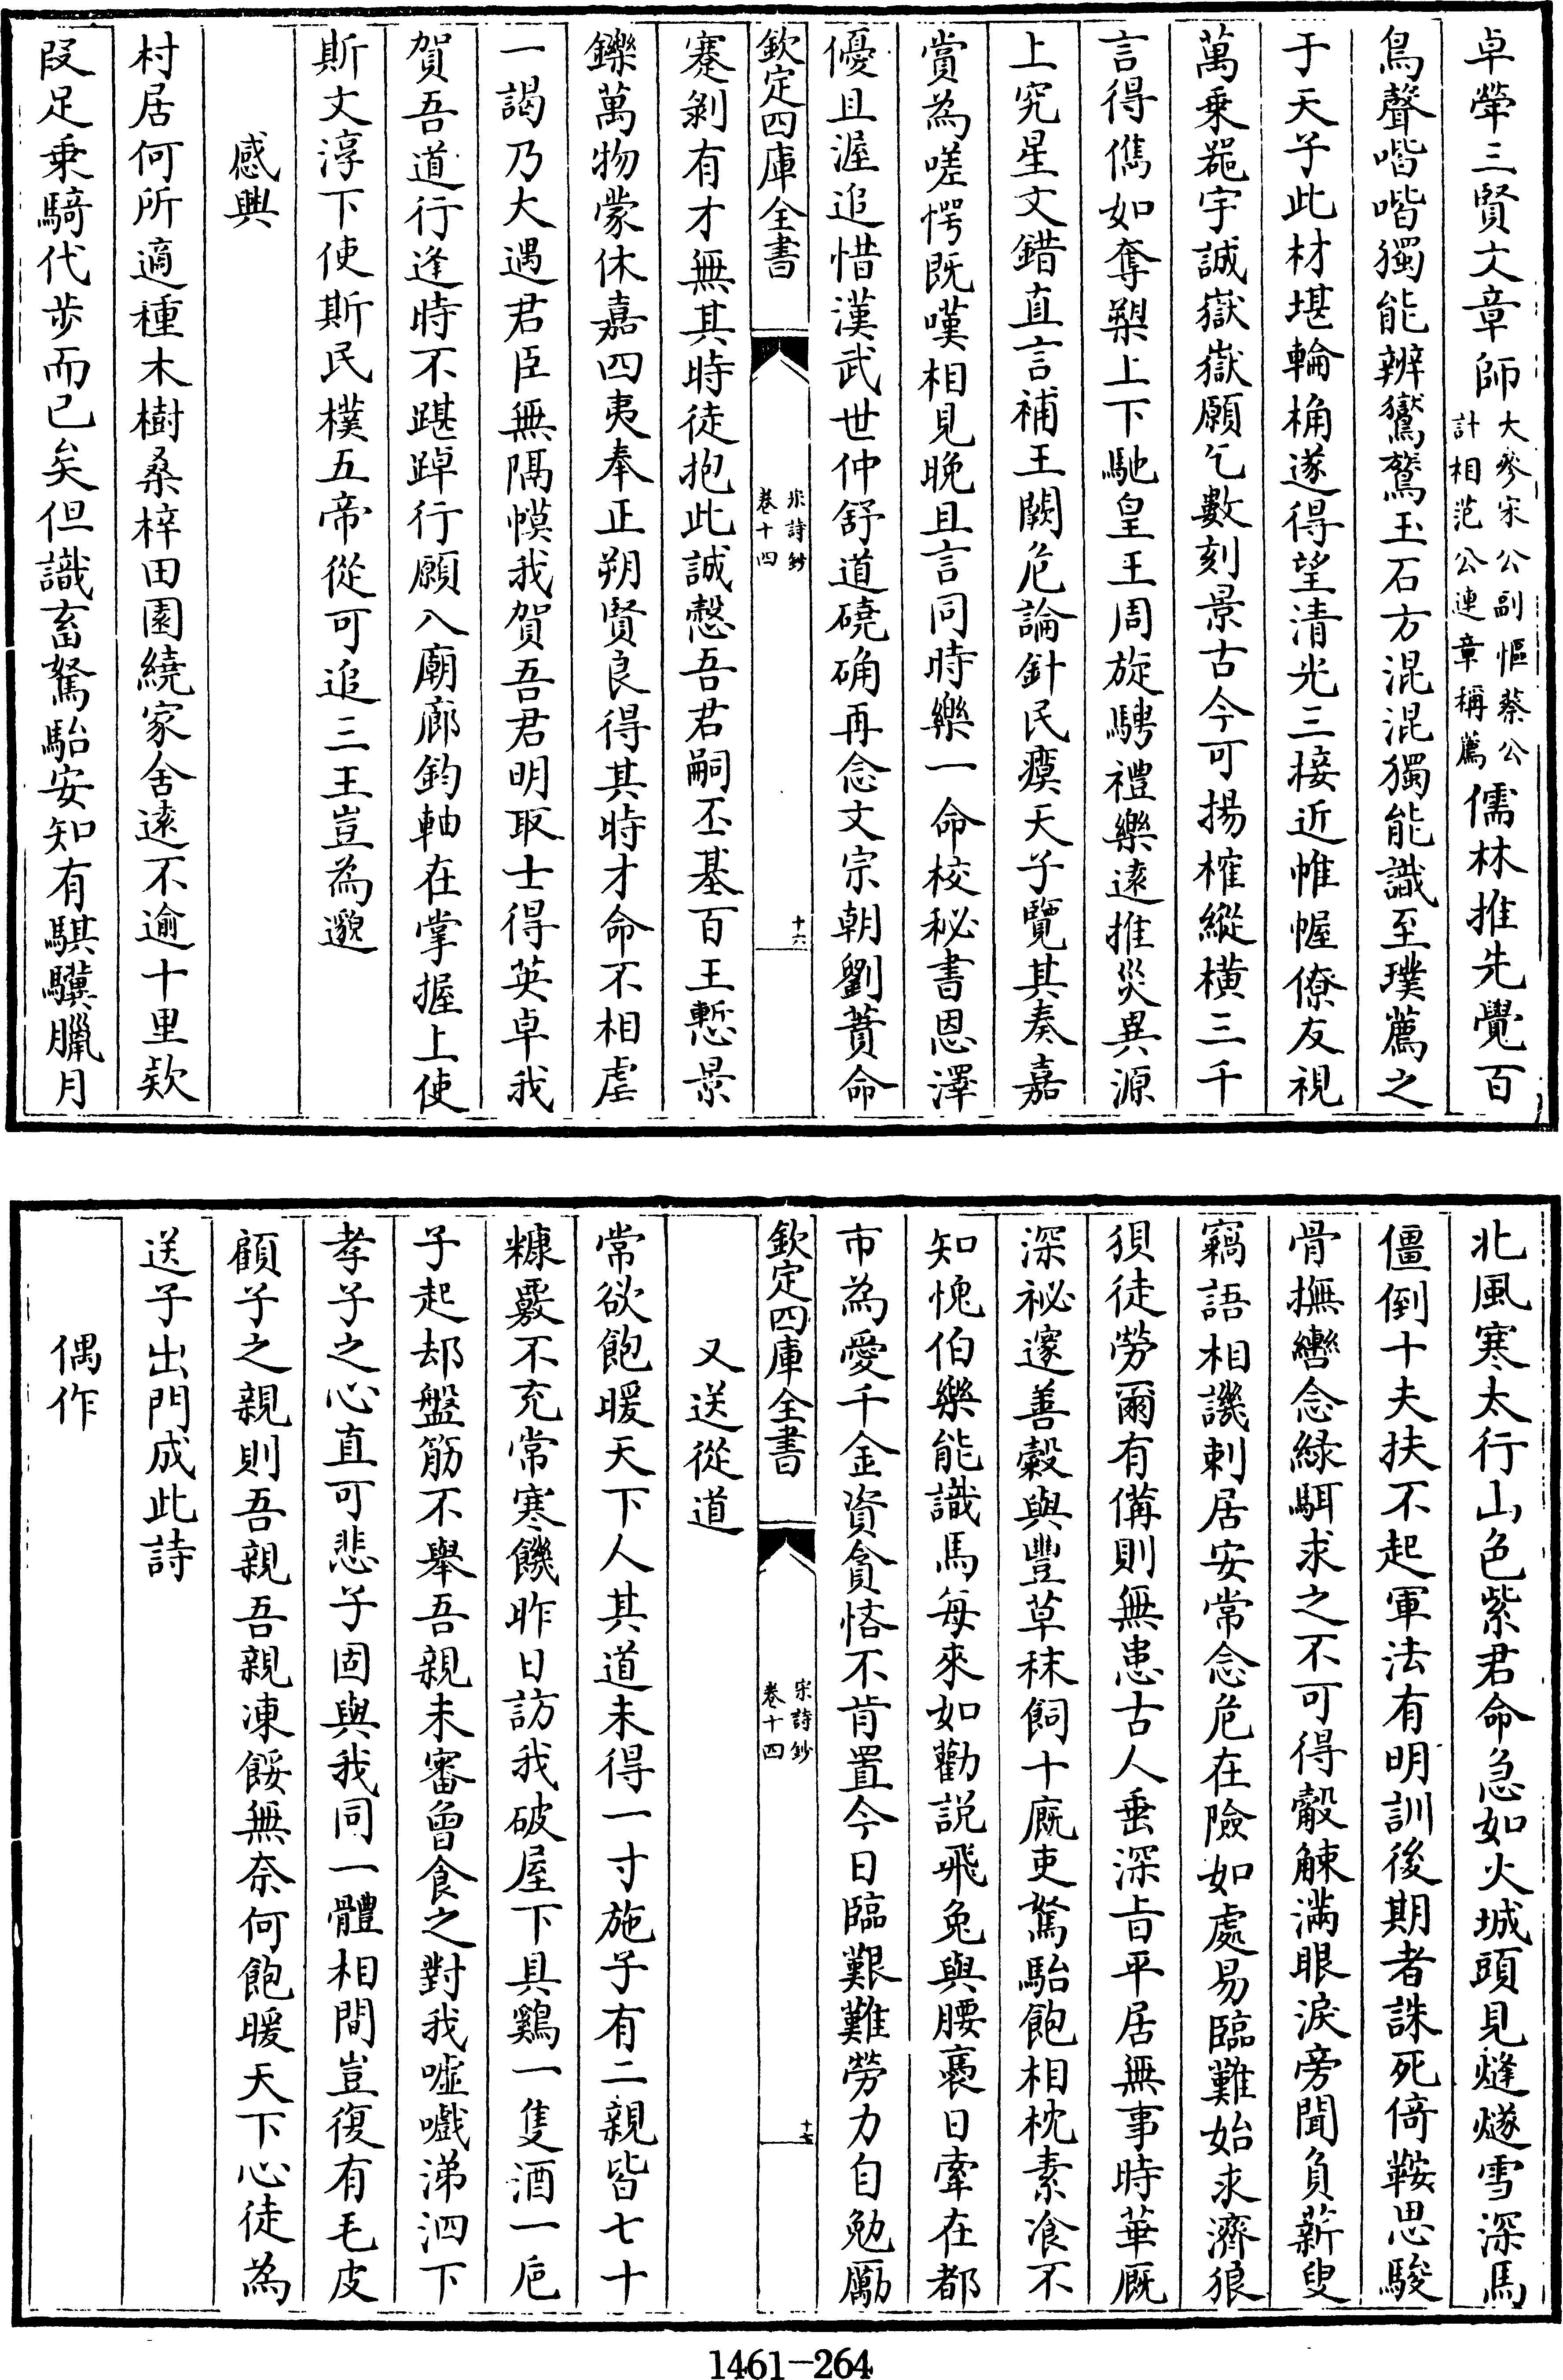 卓犖三賢文章師大參宋公副樞蔡公計相范公連章稱薦儒林推先覺百
鳥聲喈喈獨能辨鸑鷟玉石方混混獨能識至璞薦之
于天子此材堪輪桷遂得望清光三接近帷幄僚友視
萬乗器宇誠嶽嶽願乞數刻景古今可揚榷縱橫三千
言得儁如奪槊上下馳皇王周旋騁禮樂逺推災異源
上究星文錯直言補王闕危論針民瘼天子覽其奏嘉
賞為嗟愕既嘆相見晚且言同時樂一命校秘書恩澤
優且渥追惜漢武世仲舒道磽确再念文宗朝劉蕡命
欽定四庫全書
宋詩鈔
卷十四
十六
蹇剝有才無其時徒抱此誠慤吾君嗣丕基百王慙景
鑠萬物蒙休嘉四夷奉正朔賢良得其時才命不相虐
一謁乃大遇君臣無隔幙我賀吾君明取士得英卓我
賀吾道行逢時不踸踔行願入廟廊鈞軸在掌握上使
斯文淳下使斯民樸五帝從可追三王豈為邈
感興
村居何所適種木樹桑梓田園繞家舍逺不逾十里欵
叚足乗騎代步而已矣但識畜駑駘安知有騏驥臘月
北風寒太行山色紫君命急如火城頭見烽燧雪深馬
僵倒十夫扶不起軍法有明訓後期者誅死倚鞍思駿
骨撫轡念緑駬求之不可得觳觫滿眼淚旁聞負薪叟
竊語相譏刺居安常念危在險如處易臨難始求濟狼
狽徒勞爾有備則無患古人垂深旨平居無事時華厩
深祕邃善穀與豐草秣飼十厩吏駑駘飽相枕素飡不
知愧伯樂能識馬每來如勸說飛兔與腰褭日牽在都
市為愛千金資貪悋不肯置今日臨艱難勞力自勉厲
欽定四庫全書
宋詩鈔
卷十四
十七
又送從道
常欲飽暖天下人其道未得一寸施子有二親皆七十
糠覈不充常寒饑昨日訪我破屋下具鷄一隻酒一巵
子起却盤筋不舉吾親未審曾食之對我噓嚱涕泗下
孝子之心直可悲子固與我同一體相間豈復有毛皮
顧子之親則吾親吾親凍餒無奈何飽暖天下心徒為
送子出門成此詩
偶作
1461-264